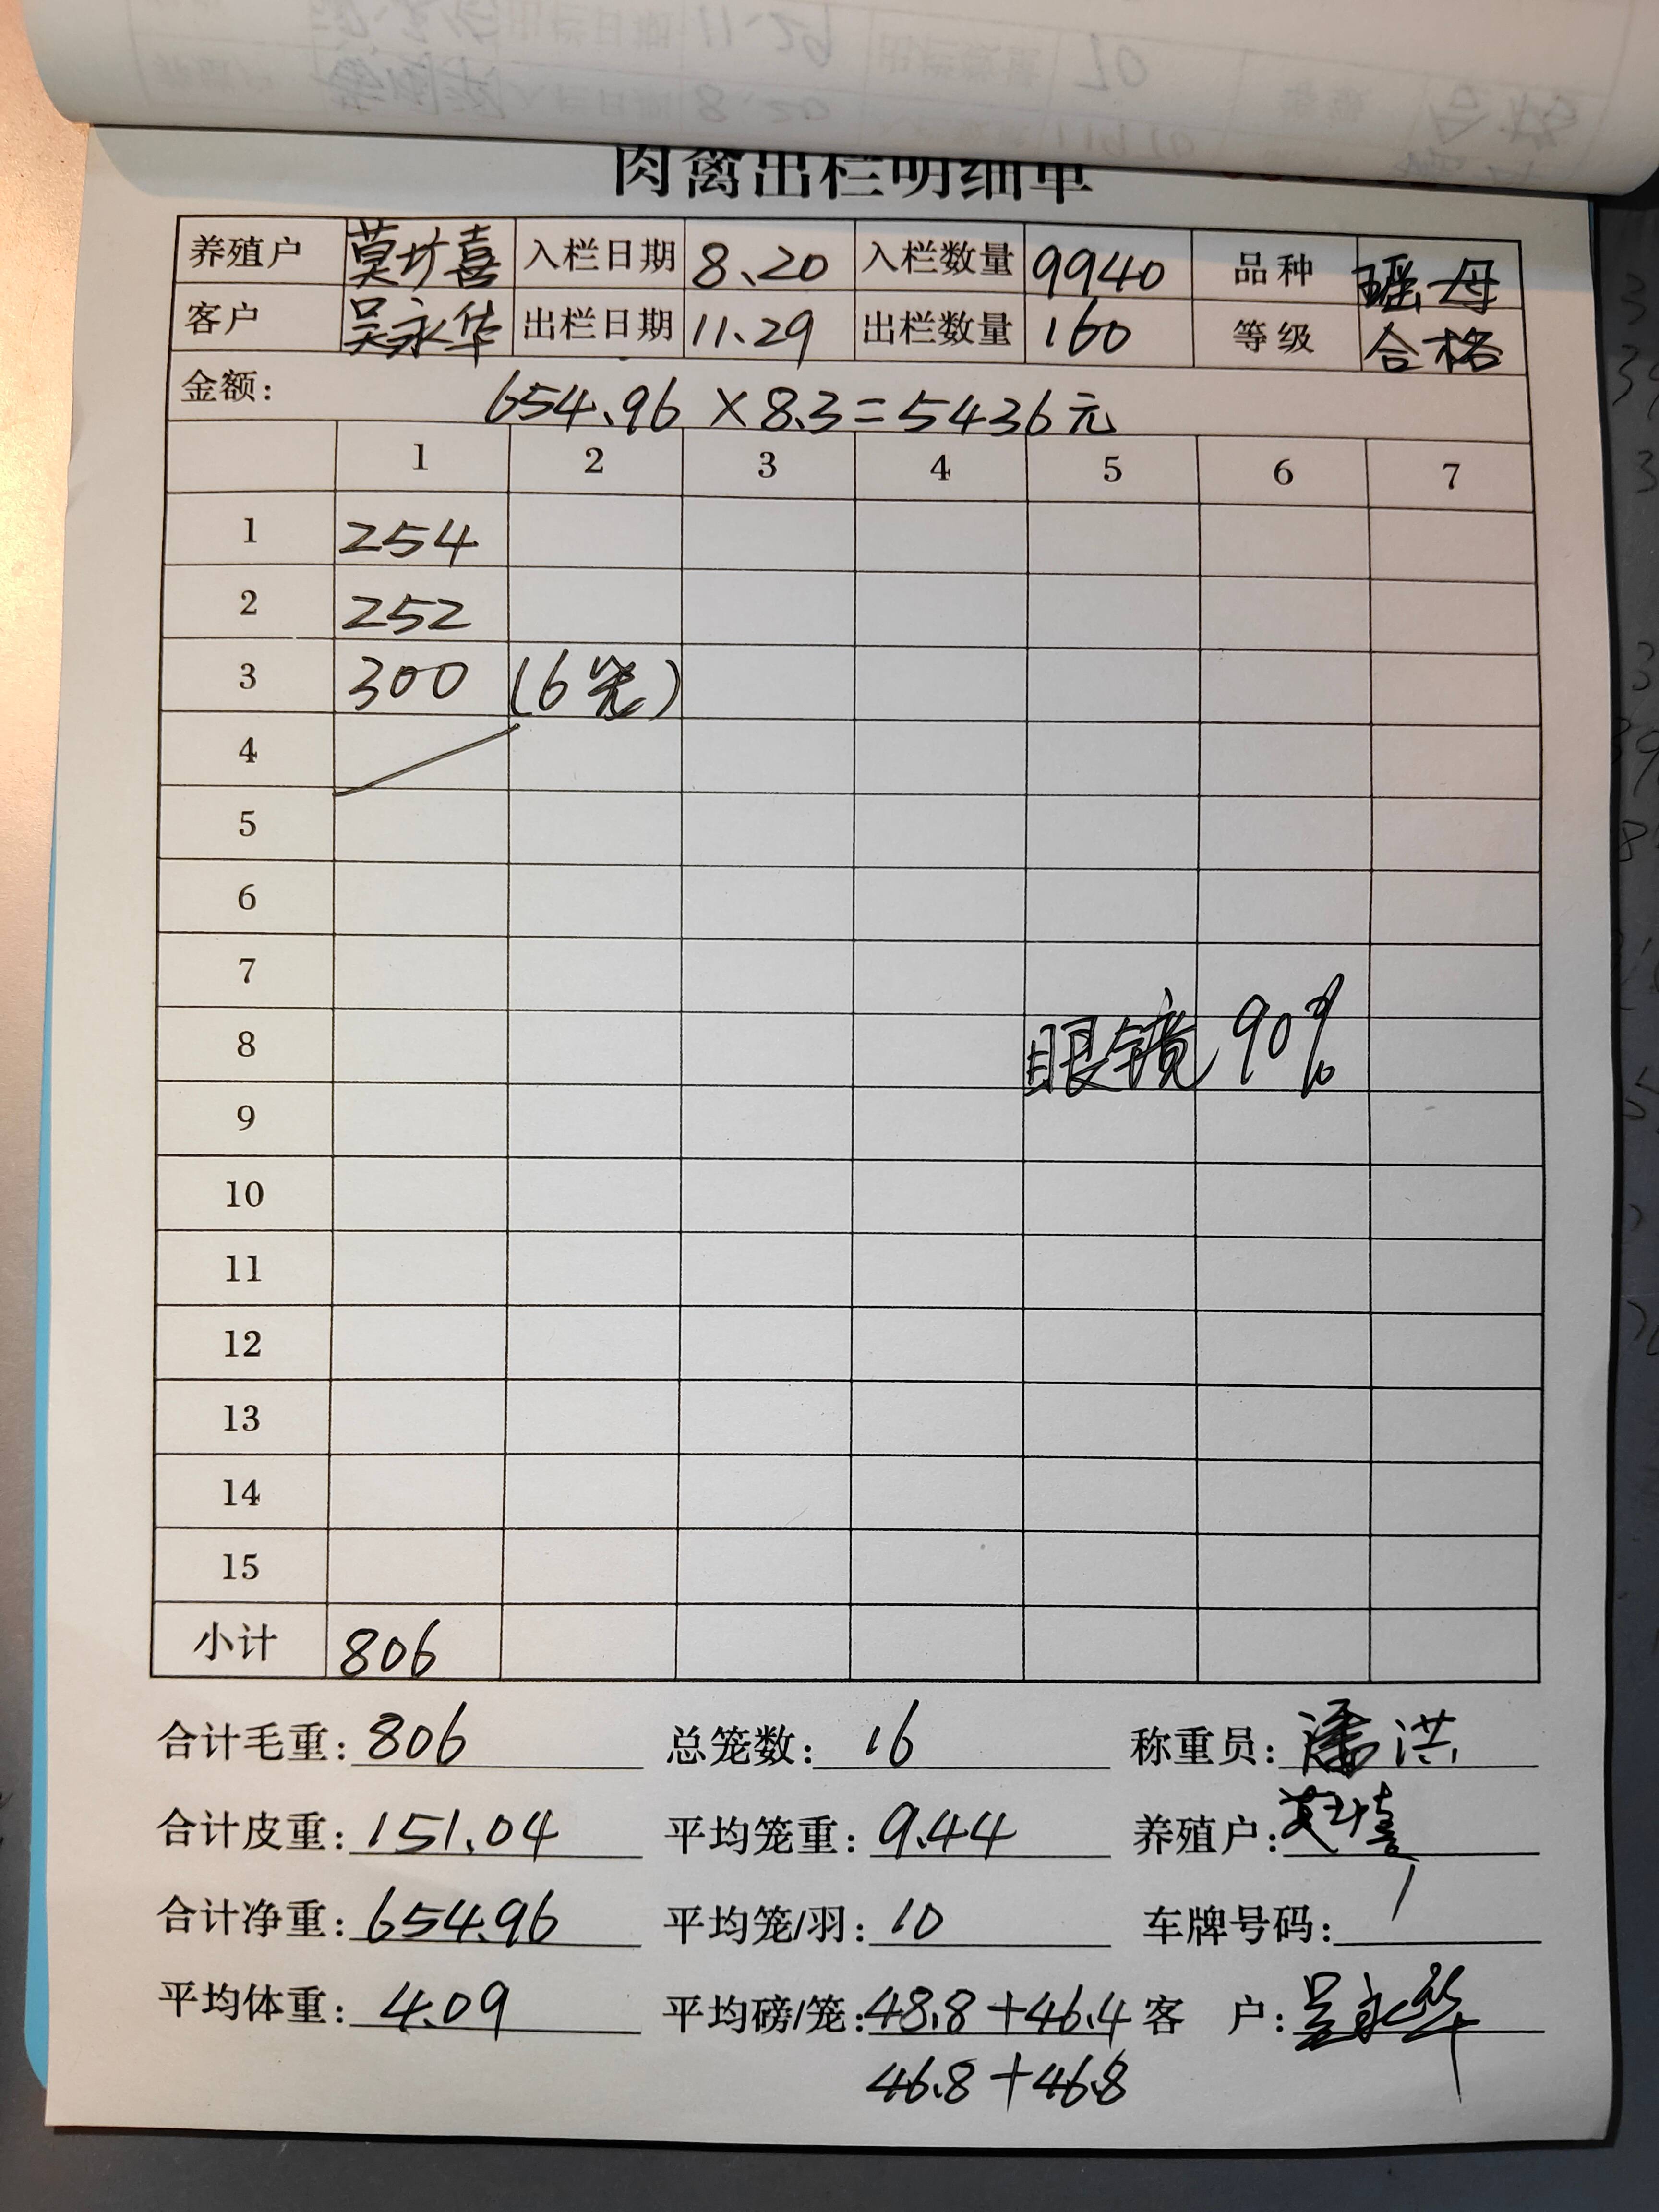 肉禽出栏明细单
养殖户 莫圹喜 入栏日期 8.20 入栏数量 9940 品种 瑶母
客户 吴永华 出栏日期 11.29 出栏数量 160 等级 合格
金额: 654.96 × 8.3 = 5436元
1 2 3 4 5 6 7
1 254
2 252
3 300 (6笼)
4
5
6
7
8 眼镜 90%
9
10
11
12
13
14
15
小计 806
合计毛重: 806 总笼数: 16 称重员: 潘洪
合计皮重: 151.04 平均笼重: 9.44 养殖户: 莫圹喜
合计净重: 654.96 平均笼/羽: 10 车牌号码: /
平均体重: 4.09 平均磅/笼: 48.8+46.4 客 户: 吴永华
46.8+46.8